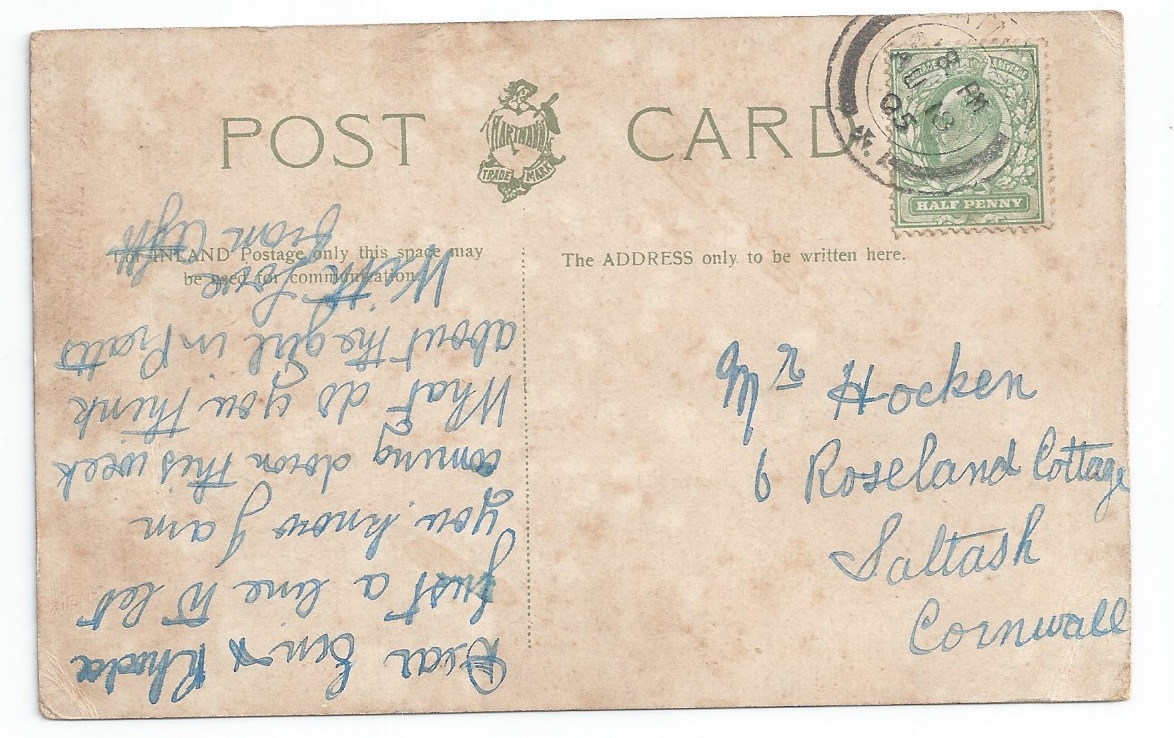 POST CARD
HARTMANN
TRADE MARK
HALF PENNY
8 PM
05
For INLAND Postage only this space may
be used for communication.
The ADDRESS only to be written here.
Mr Hocken
6 Roseland Cottage
Saltash
Cornwall
Dear Ern & Rhoda
Just a line to let
you know I am
coming down this week
What do you think
about the girl in Pratts
With love
from